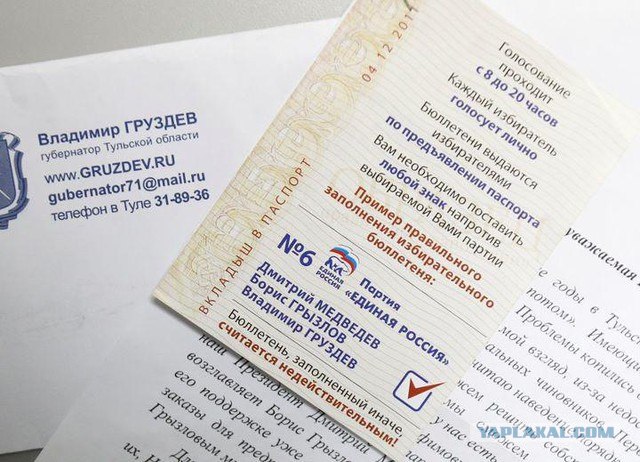 Владимир ГРУЗДЕВ
губернатор Тульской области
www.GRUZDEV.RU
gubernator71@mail.ru
телефон в Туле 31-89-36
ВКЛАДЫШ В ПАСПОРТ
04 12 2011
Голосование
проходит
с 8 до 20 часов
Каждый избиратель
голосует лично
Бюллетени выдаются
избирателями
по предъявлении паспорта
Вам необходимо поставить
любой знак напротив
выбираемой Вами партии
Пример правильного
заполнения избирательного
бюллетеня:
№6
ЕДИНАЯ
РОССИЯ
Партия
"ЕДИНАЯ РОССИЯ"
Дмитрий МЕДВЕДЕВ
Борис ГРЫЗЛОВ
Владимир ГРУЗДЕВ
Бюллетень, заполненный иначе,
считается недействительным!
уважаемая
годы в Тульс
потом». Имеющи
Проблемы копились
мой взгляд, из-за недо
альных чиновников. Пер
читаю наведение поряд
наш Президент Дмитрий М
возглавляет Борис Грызл
его поддержке уже
заказы для пред
Грызловым м
их. Н
YAPLAKAL.COM